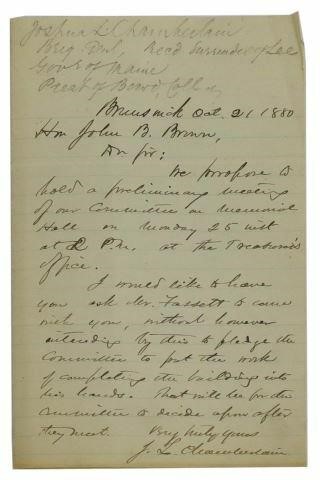 Joshua L Chamberlain
Brig Genl, Recd Surrender of Lee
Gov's of Maine
Prest of Bowd. Coll
Brunswick Oct. 21 1880
Hon John B. Brown,
Dr Sir:
We propose to
hold a preliminary meeting
of our Committee on Memorial
Hall on Monday 25 inst
at 2 P.M. at the Treasurer's
office.
I would like to have
you ask Mr. Fassett to come
with you, without however
intending by this to pledge the
Committee to put the work
of completing the building into
his hands. That will be for the
committee to decide upon after
they meet. Very truly yours
J. L. Chamberlain